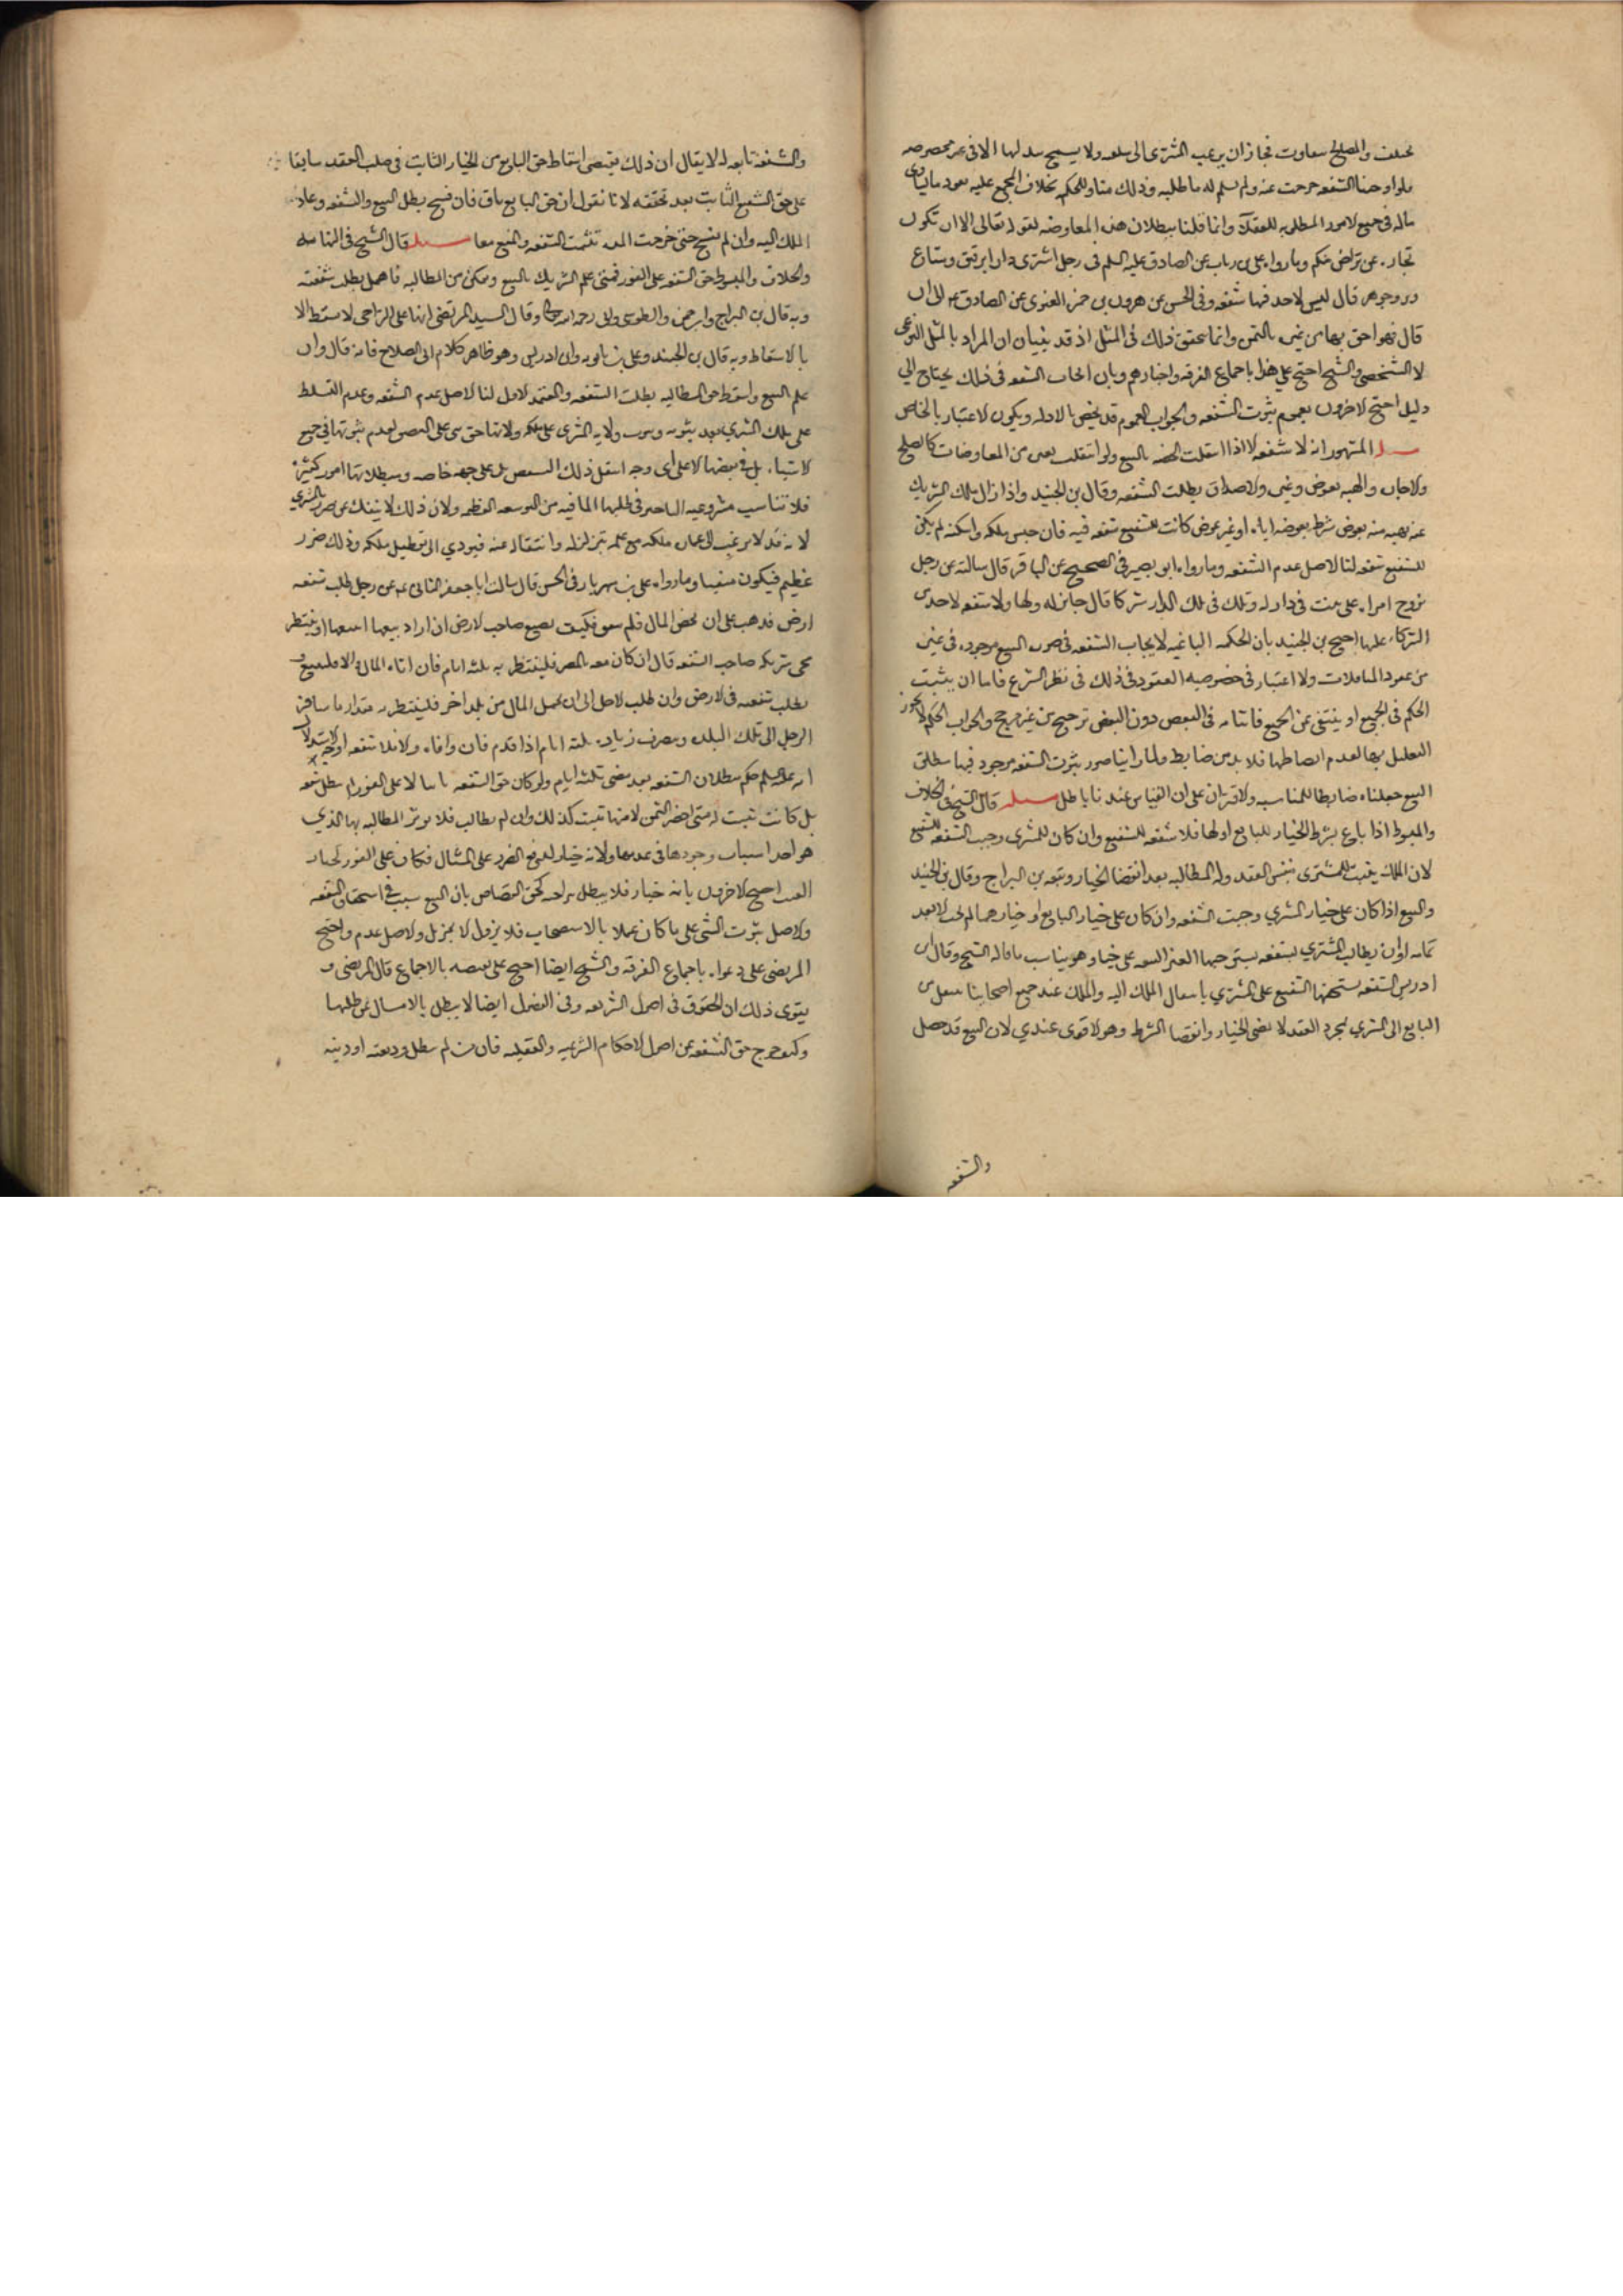 تختلف والمصالح تتفاوت فجاز ان يرغب المشترى الى سلعه ولا يسمح ببدلها الا فى
فلو اوجبنا الشفعه خرجت عنه ولم يسلم له ما طلبه وذلك مناف للحكم بخلاف المجمع عليه
ماله فى جميع الامور المطلوبه للعقلآء وانما قلنا ببطلان هذه المعاوضه لقوله تعالى الا ان تكون
تجاره عن تراض منكم وما رواه على بن رياب عن الصادق عليه السلم فى رجل اشترى دارا برقيق ومتاع
وبز وجوهر قال ليس لاحد فيها شفعه وفى الحسن عن هرون بن حمزه الغنوى عن الصادق ع الى ان
قال فهو احق بها من غيره بالثمن وانما يتحقق ذلك فى المثل اذ قد بينا ان المراد بالمثل النوعى
لا الشخصى والشيخ احتج على هذا باجماع الفرقه واخبارهم وبان ايجاب الشفعه فى ذلك يحتاج الى
دليل احتج الاخرون بعموم ثبوت الشفعه والجواب العموم قد يخص بالادله ويكون الاعتبار بالخاص
المشهور انه لا شفعه الا اذا انتقلت الحصه بالبيع ولو انتقلت بغيره من المعاوضات كالصلح
والاجاره والهبه بعوض وغيره والاصداق بطلت الشفعه وقال بن الجنيد واذا زال ملك الشريك
عنه بهبه منه بعوض شرط يعوضه اياه او غير عوض كانت للشفيع شفعه فيه فان حبس ملكه واسكنه لم يكن
للشفيع شفعه لنا الاصل عدم الشفعه وما رواه ابو بصير فى الصحيح عن الباقر قال سالته عن رجل
تزوج امراه على بيت فى دار له وله فى تلك الدار شركا قال جايز له ولها ولا شفعه لاحد من
الشركاء عليها احتج بن الجنيد بان الحكمه الباعثه لايجاب الشفعه فى صوره البيع موجوده فى غيره
من عقود المعاملات ولا اعتبار فى خصوصيه العقود فى ذلك فى نظر الشرع فاما ان يثبت
الحكم فى الجميع او ينتفى عن الجميع فاثباته فى البعض دون البعض ترجيح من غير مرجح والجواب الحكم لا يجوز
التعليل بها لعدم انضباطها فلا بد من ضابط ولما راينا صور ثبوت الشفعه موجود فيها مطلق
البيع جعلناه ضابطا للمناسبه والاقتران على ان القياس عندنا باطل قال الشيخ فى الخلاف
والمبسوط اذا باع بشرط الخيار للبايع او لهما فلا شفعه للشفيع وان كان للمشترى وجبت الشفعه للشفيع
لان الملك يثبت للمشترى بنفس العقد وله المطالبه بعد انقضا الخيار وتبعه بن البراج وقال بن الجنيد
والبيع اذا كان على خيار المشتري وجبت الشفعه وان كان على خيار البايع او خيارهما لم تجب الا بعد
تمامه او ان يطالب المشتري بشفعه يستوجبها وهو يناسب ما قاله الشيخ وقال بن
ادريس الشفعه يستحقها الشفيع على المشتري بانتقال الملك اليه والملك عند جميع اصحابنا ينتقل من
البايع الى المشتري بمجرد العقد لا بمضى الخيار وانقضا الشرط وهو الاقوى عندي لان البيع قد حصل
والشفعه
والشفعه تابعه له لا يقال ان ذلك يقتضى اسقاط حق البايع من الخيار الثابت فى صلب العقد سابقا
على حق الشفيع الثابت بعد تحققه لانا نقول ان حق البايع باق فان فسخ بطل البيع والشفعه وعاد
الملك اليه وان لم يفسخ حتى خرجت المده تثبت الشفعه والبيع معا قال الشيخ فى النهايه
والخلاف والمبسوط حق الشفعه على الفور فمتى علم الشريك بالبيع وتمكن من المطالبه فاهمل بطلت شفعته
وبه قال بن البراج وابن حمزه والطوسى ووالدى رحمه الله وقال السيد المرتضى انها على التراخى لا تسقط الا
بالاسقاط وبه قال بن الجنيد وعلى بن بابويه وابن ادريس وهو ظاهر كلام ابى الصلاح فانه قال وان
علم البيع واسقط حق المطالبه بطلت الشفعه والمعتمد الاول لنا الاصل عدم الشفعه وعدم التسلط
على ملك المشتري بعد ثبوته وثبوت ولايه المشترى على ملكه
الاشياء بل فى بعضها لا على اى وجه اتفق ذلك البعض بل على جهه خاصه ويبطلانها امور كثيره
فلا تناسب مشروعيه التاخير فى طلبها لما فيه من التوسعه العظيمه ولان ذلك لا ينفك عن ضرر المشترى
لانه قد لا يرغب الى عماره ملكه مع علمه بتزلزله وانتقاله عنه فيودي الى تعطيل ملكه وذلك ضرر
عظيم فيكون منفيا وما رواه على بن مهزيار فى الحسن قال سالت ابا جعفر الثانى ع عن رجل طلب شفعه
ارض فذهب على ان يحضر المال فلم ينض فكيف يصنع صاحب الارض ان اراد بيعها ايبيعها او ينتظر
مجى شريكه صاحب الشفعه قال ان كان معه بالمصر فلينتظر به ثلثه ايام فان اتاه بالمال والا فليبع و
بطلت شفعته فى الارض وان طلب الاجل الى ان يحمل المال من بلد اخر فلينتظر به مقدار ما سافر
الرجل الى تلك البلده وينصرف وزياده ثلثه ايام اذا قدم فان وافاه والا فلا شفعه له وجه الاستدلال
انه عليه السلم حكم ببطلان الشفعه بعد مضى ثلثه ايام ولو كان حق الشفعه ثابتا لا على الفور لم تبطل شفعه
بل كانت تثبت له متى احضر الثمن لانها تثبت كذلك وان لم يطالب فلا يوثر المطالبه بها الذي
هو احد اسباب وجودها فى عدمها ولانه خيار لدفع الضرر على المثال فكان على الفور كخيار
العيب احتج الاخرون بانه خيار فلا يبطل بتراخيه كحق القصاص بان البيع سبب فى استحقاق الشفعه
والاصل ثبوت الشى على ما كان عملا بالاستصحاب فلا يزول الا بمزيل والاصل عدمه واحتج
المرتضى على دعواه باجماع الفرقه والشيخ ايضا احتج على نقيضه بالاجماع قال المرتضى و
يقوى ذلك ان الحقوق فى اصول الشريعه وفى العقول ايضا لا يبطل بالامساك عن طلبها
وكيف خرج حق الشفعه عن اصول الاحكام الشرعيه والعقليه فان من لم يطلب وديعته او دينه